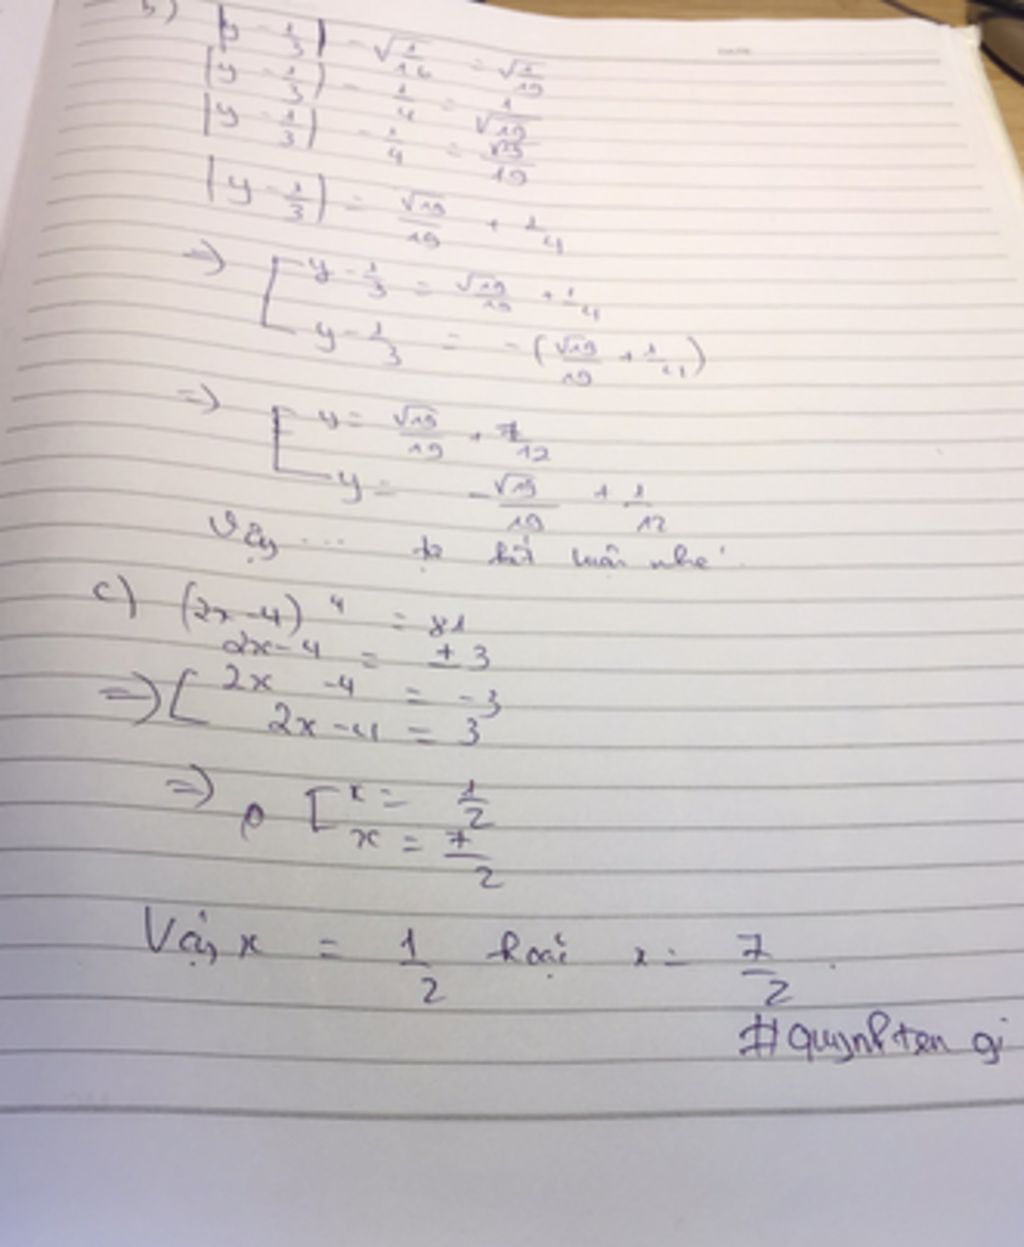 b) |y - 1/3| - √(1/16) = √(1/19)
|y - 1/3| - 1/4 = 1/√19
|y - 1/3| - 1/4 = √19/19
|y - 1/3| = √19/19 + 1/4
=> [ y - 1/3 = √19/19 + 1/4
y - 1/3 = -(√19/19 + 1/4)
=> [ y = √19/19 + 7/12
y = -√19/19 + 1/12
Vậy ... tự kết luận nhé
c) (2x-4)^4 = 81
2x-4 = ±3
=> [ 2x -4 = -3
2x-4 = 3
=> [ x = 1/2
x = 7/2
Vậy x = 1/2 hoặc x = 7/2.
#quynh ten gi